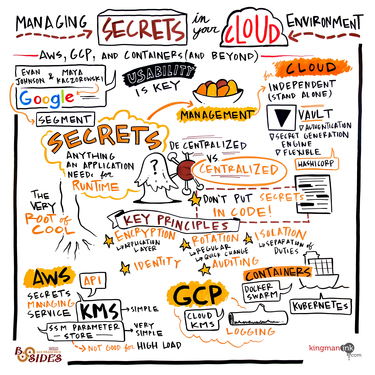 MANAGING SECRETS in your CLOUD ENVIRONMENT
AWS, GCP, AND CONTAINERS (AND BEYOND)
EVAN JOHNSON & MAYA KACZOROWSKI
Google
SEGMENT
USABILITY
IS KEY
MANAGEMENT
CLOUD
INDEPENDENT
(STAND ALONE)
VAULT
AUTHENTICATION
SECRET GENERATION
ENGINE
FLEXIBLE
HASHICORP
SECRETS
ANYTHING
AN APPLICATION
NEEDS for
RUNTIME
?
DECENTRALIZED
VS.
CENTRALIZED
DON'T PUT SECRETS
IN CODE!
THE
VERY
ROOT of
COOL
KEY PRINCIPLES
ENCRYPTION
APPLICATION
LAYER
ROTATION
REGULAR
QUICK CHANGE
ISOLATION
SEPARATION OF
DUTIES
IDENTITY
AUDITING
AWS
API
SECRETS
MANAGING
SERVICE
KMS
SIMPLE
SSM PARAMETER
STORE
VERY
SIMPLE
NOT GOOD for HIGH LOAD
GCP
CLOUD
KMS
LOGGING
CONTAINERS
DOCKER
SWARM
KUBERNETES
BSIDES
kingmanink.com